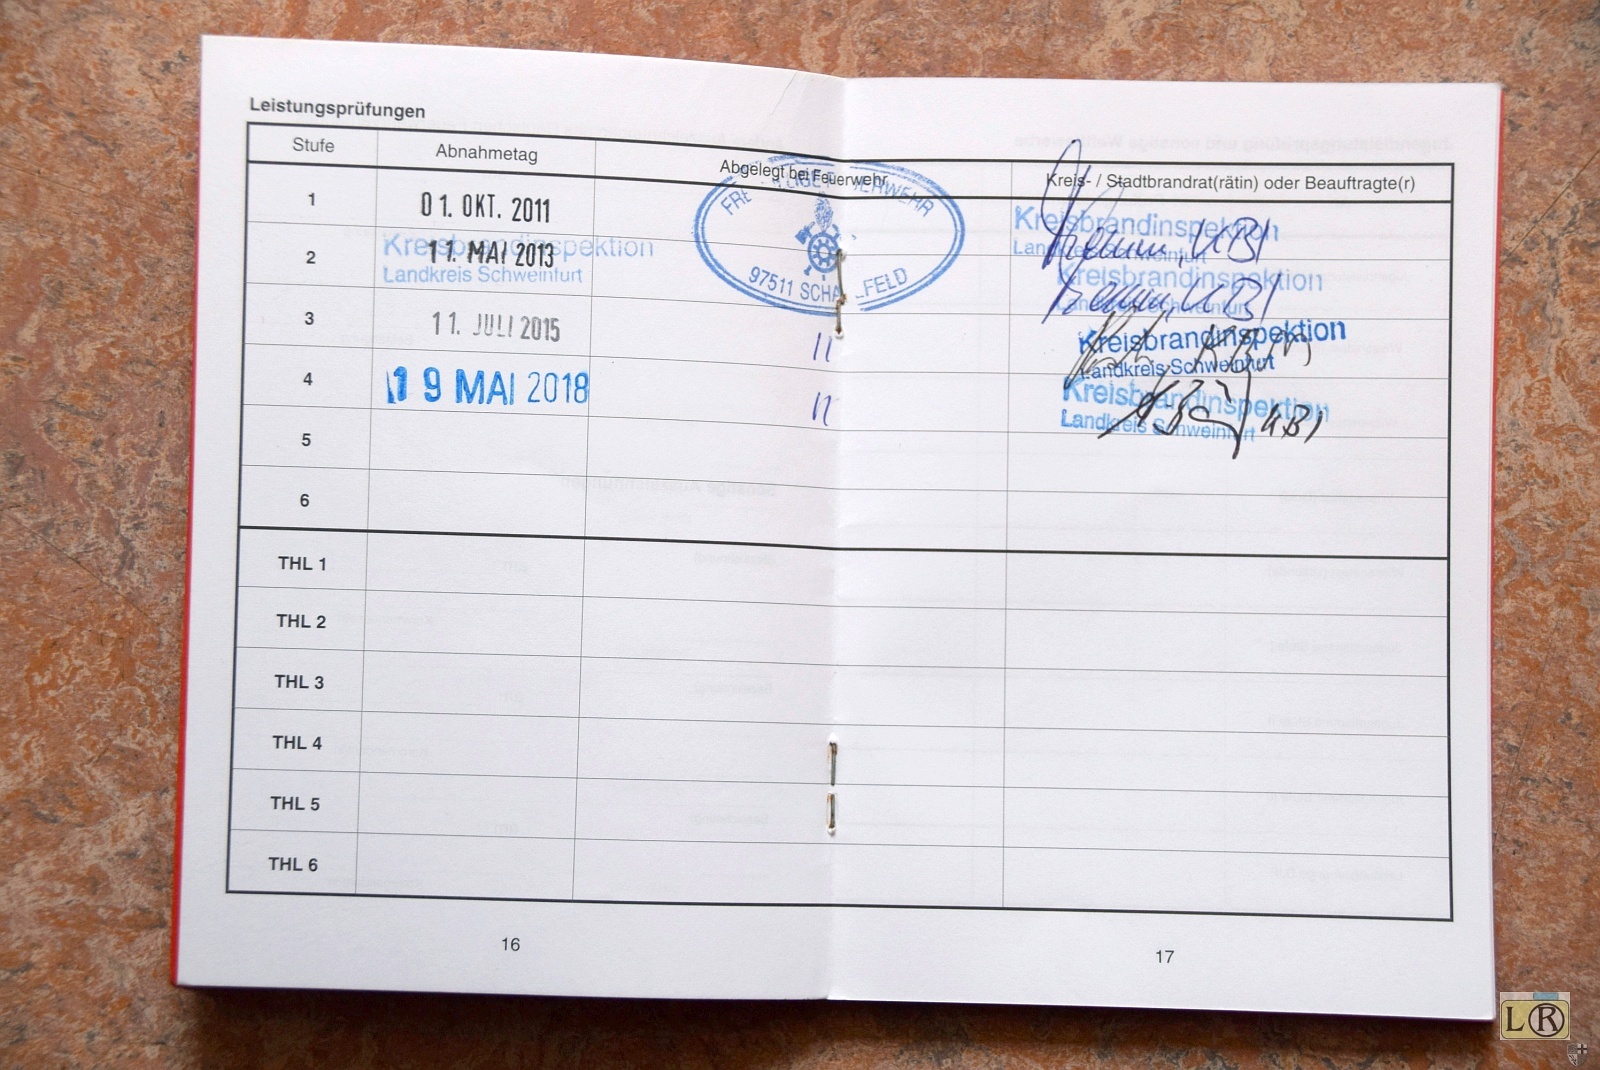 Leistungsprüfungen
Stufe Abnahmetag Abgelegt bei Feuerwehr Kreis- / Stadtbrandrat(rätin) oder Beauftragte(r)
1 01. OKT. 2011
FREIWILLIGE FEUERWEHR
97511 SCHALLFELD
Kreisbrandinspektion
Landkreis Schweinfurt
KBI
2 11. MAI 2013
Kreisbrandinspektion
Landkreis Schweinfurt
Kreisbrandinspektion
Landkreis Schweinfurt
KBI
3 11. JULI 2015 "
Kreisbrandinspektion
Landkreis Schweinfurt
4 19 MAI 2018 "
Kreisbrandinspektion
Landkreis Schweinfurt
KBI
5
6
THL 1
THL 2
THL 3
THL 4
THL 5
THL 6
16
17
L R